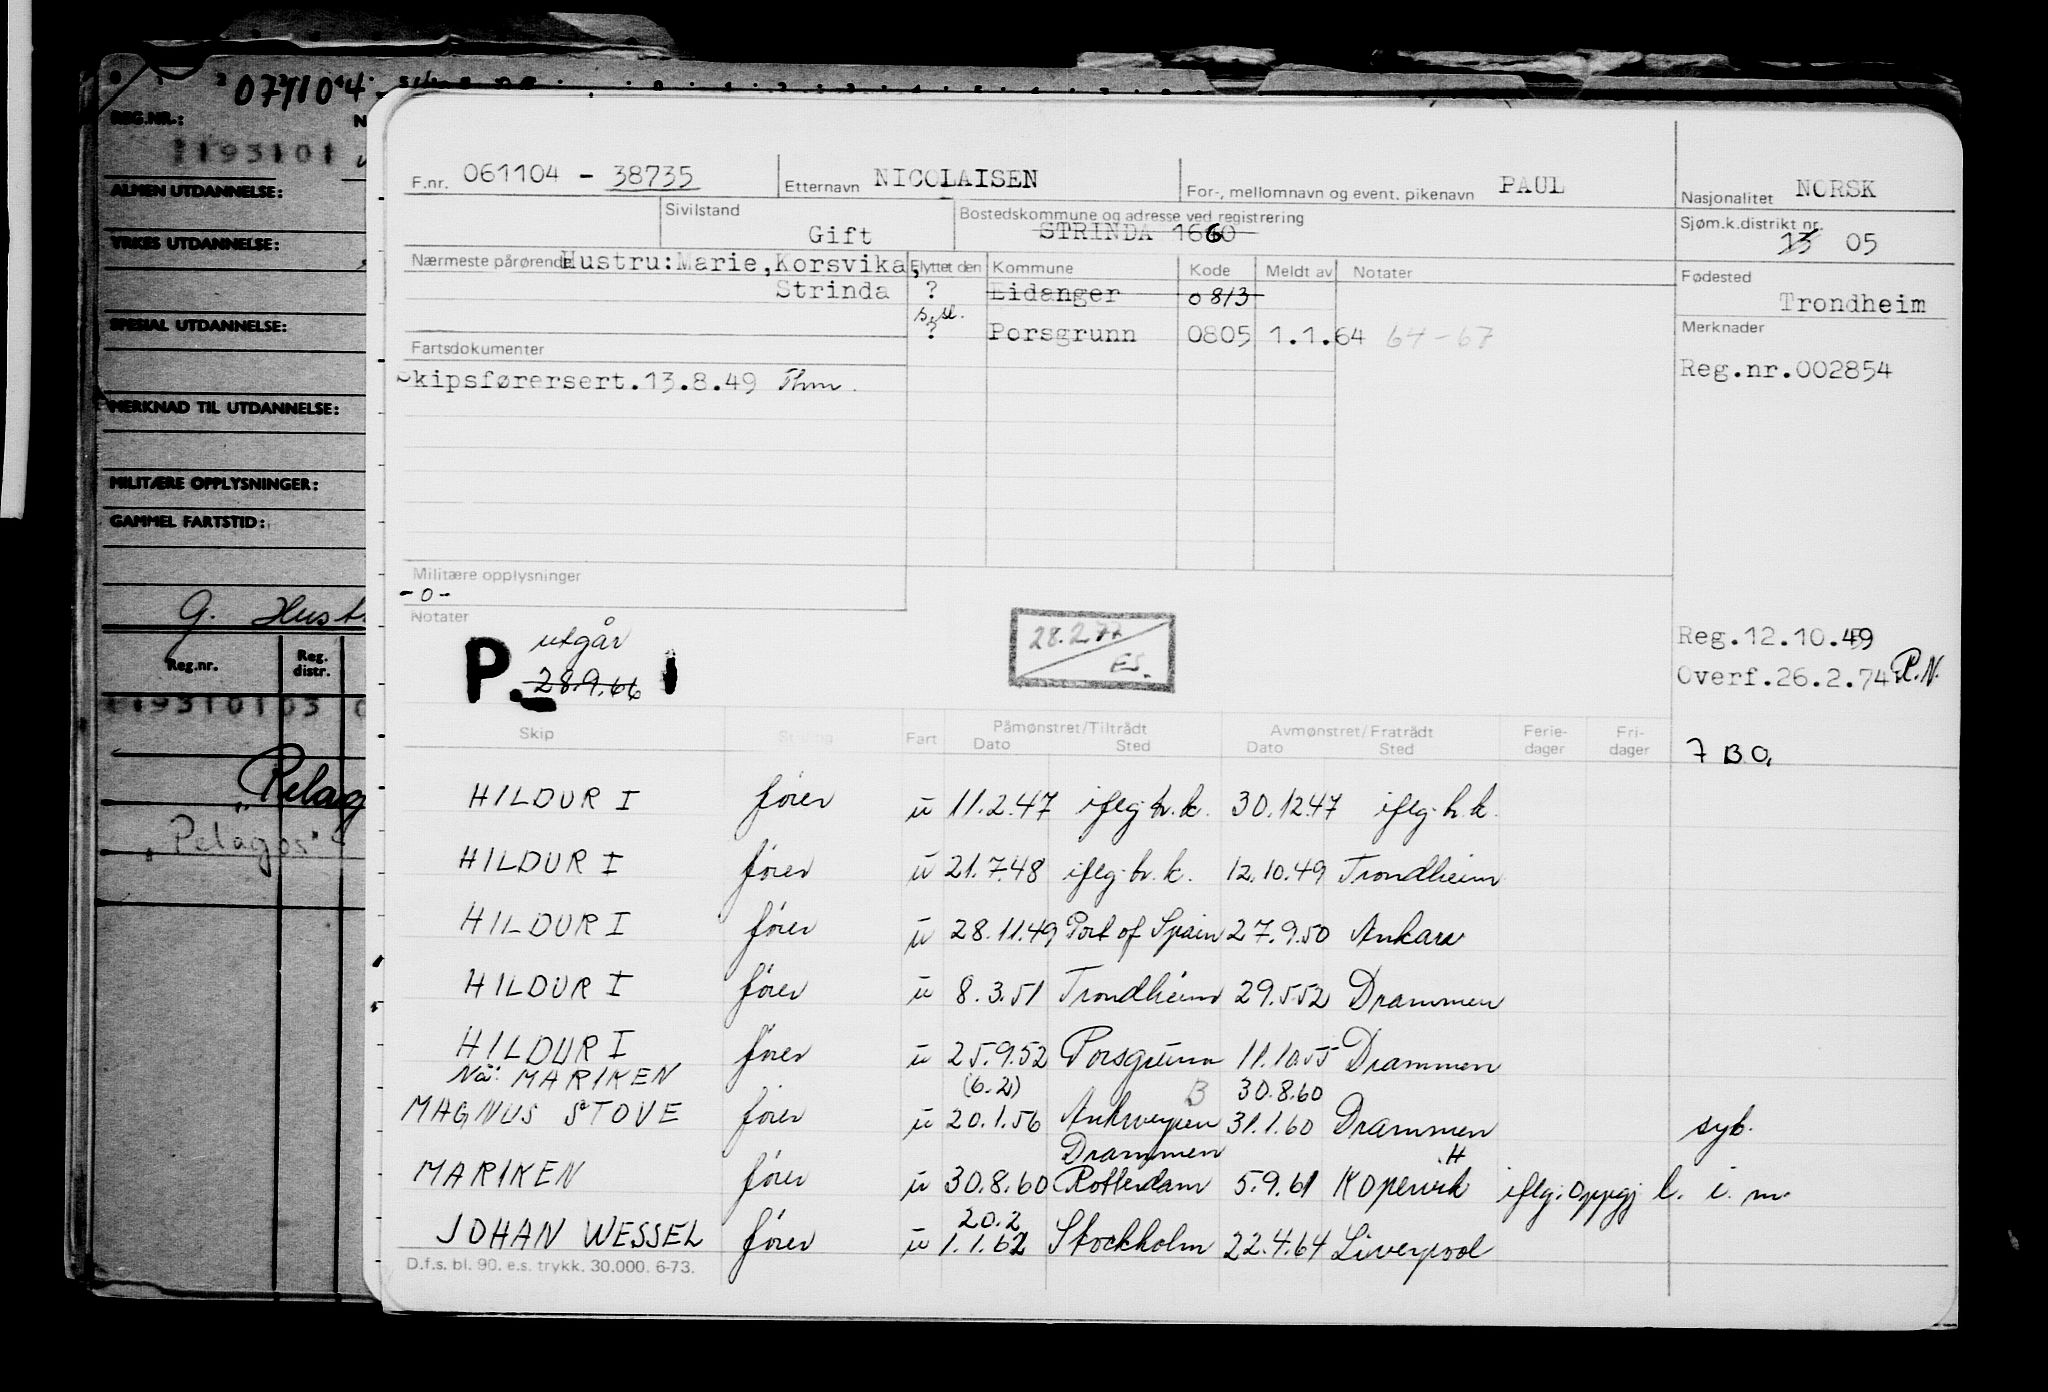 071104
REG.NR.:
1193101
ALMEN UTDANNELSE:
YRKES UTDANNELSE:
SPESIAL UTDANNELSE:
MERKNAD TIL UTDANNELSE:
MILITÆRE OPPLYSNINGER:
GAMMEL FARTSTID:
G. Hust
Reg.nr. Reg. distr.
119310103
"Pelag
"Pelagos"
F.nr. 061104 - 38735 Etternavn NICOLAISEN For-, mellomnavn og event. pikenavn PAUL Nasjonalitet NORSK
Sivilstand Gift Bostedskommune og adresse ved registrering STRINDA 1660 Sjøm.k.distrikt nr. 13 05
Nærmeste pårørende Hustru:Marie,Korsvika, Flyttet den Kommune Kode Meldt av Notater Fødested
Strinda ? Eidanger 0813 Trondheim
s.sl.
? Porsgrunn 0805 1.1.64 64-67 Merknader
Fartsdokumenter Reg.nr.002854
Skipsførersert.13.8.49 Thm.
Militære opplysninger
-0-
Notater
P. utgår
28.9.66
28.2.77
ES.
Reg.12.10.49
Overf.26.2.74 P.N.
Skip Stilling Fart Påmønstret/Tiltrådt Avmønstret/Fratrådt Ferie- Fri-
Dato Sted Dato Sted dager dager 7 B.O.
HILDUR I fører u 11.2.47 iflg. h.k. 30.12.47 iflg. h.k.
HILDUR I fører u 21.7.48 iflg. h.k. 12.10.49 Trondheim
HILDUR I fører u 28.11.49 Port of Spain 27.9.50 Ankara
HILDUR I fører u 8.3.51 Trondheim 29.5.52 Drammen
HILDUR I fører u 25.9.52 Porsgrunn 11.10.55 Drammen
Nå: MARIKEN (6.2) B 30.8.60
MAGNUS STOVE fører u 20.1.56 Antwerpen 31.1.60 Drammen syk.
Drammen H
MARIKEN fører u 30.8.60 Rotterdam 5.9.61 Kopervik iflg. oppgj l. i. m.
20.2
JOHAN WESSEL fører u 1.1.62 Stockholm 22.4.64 Liverpool
D.f.s. bl. 90. e.s. trykk. 30.000. 6-73.